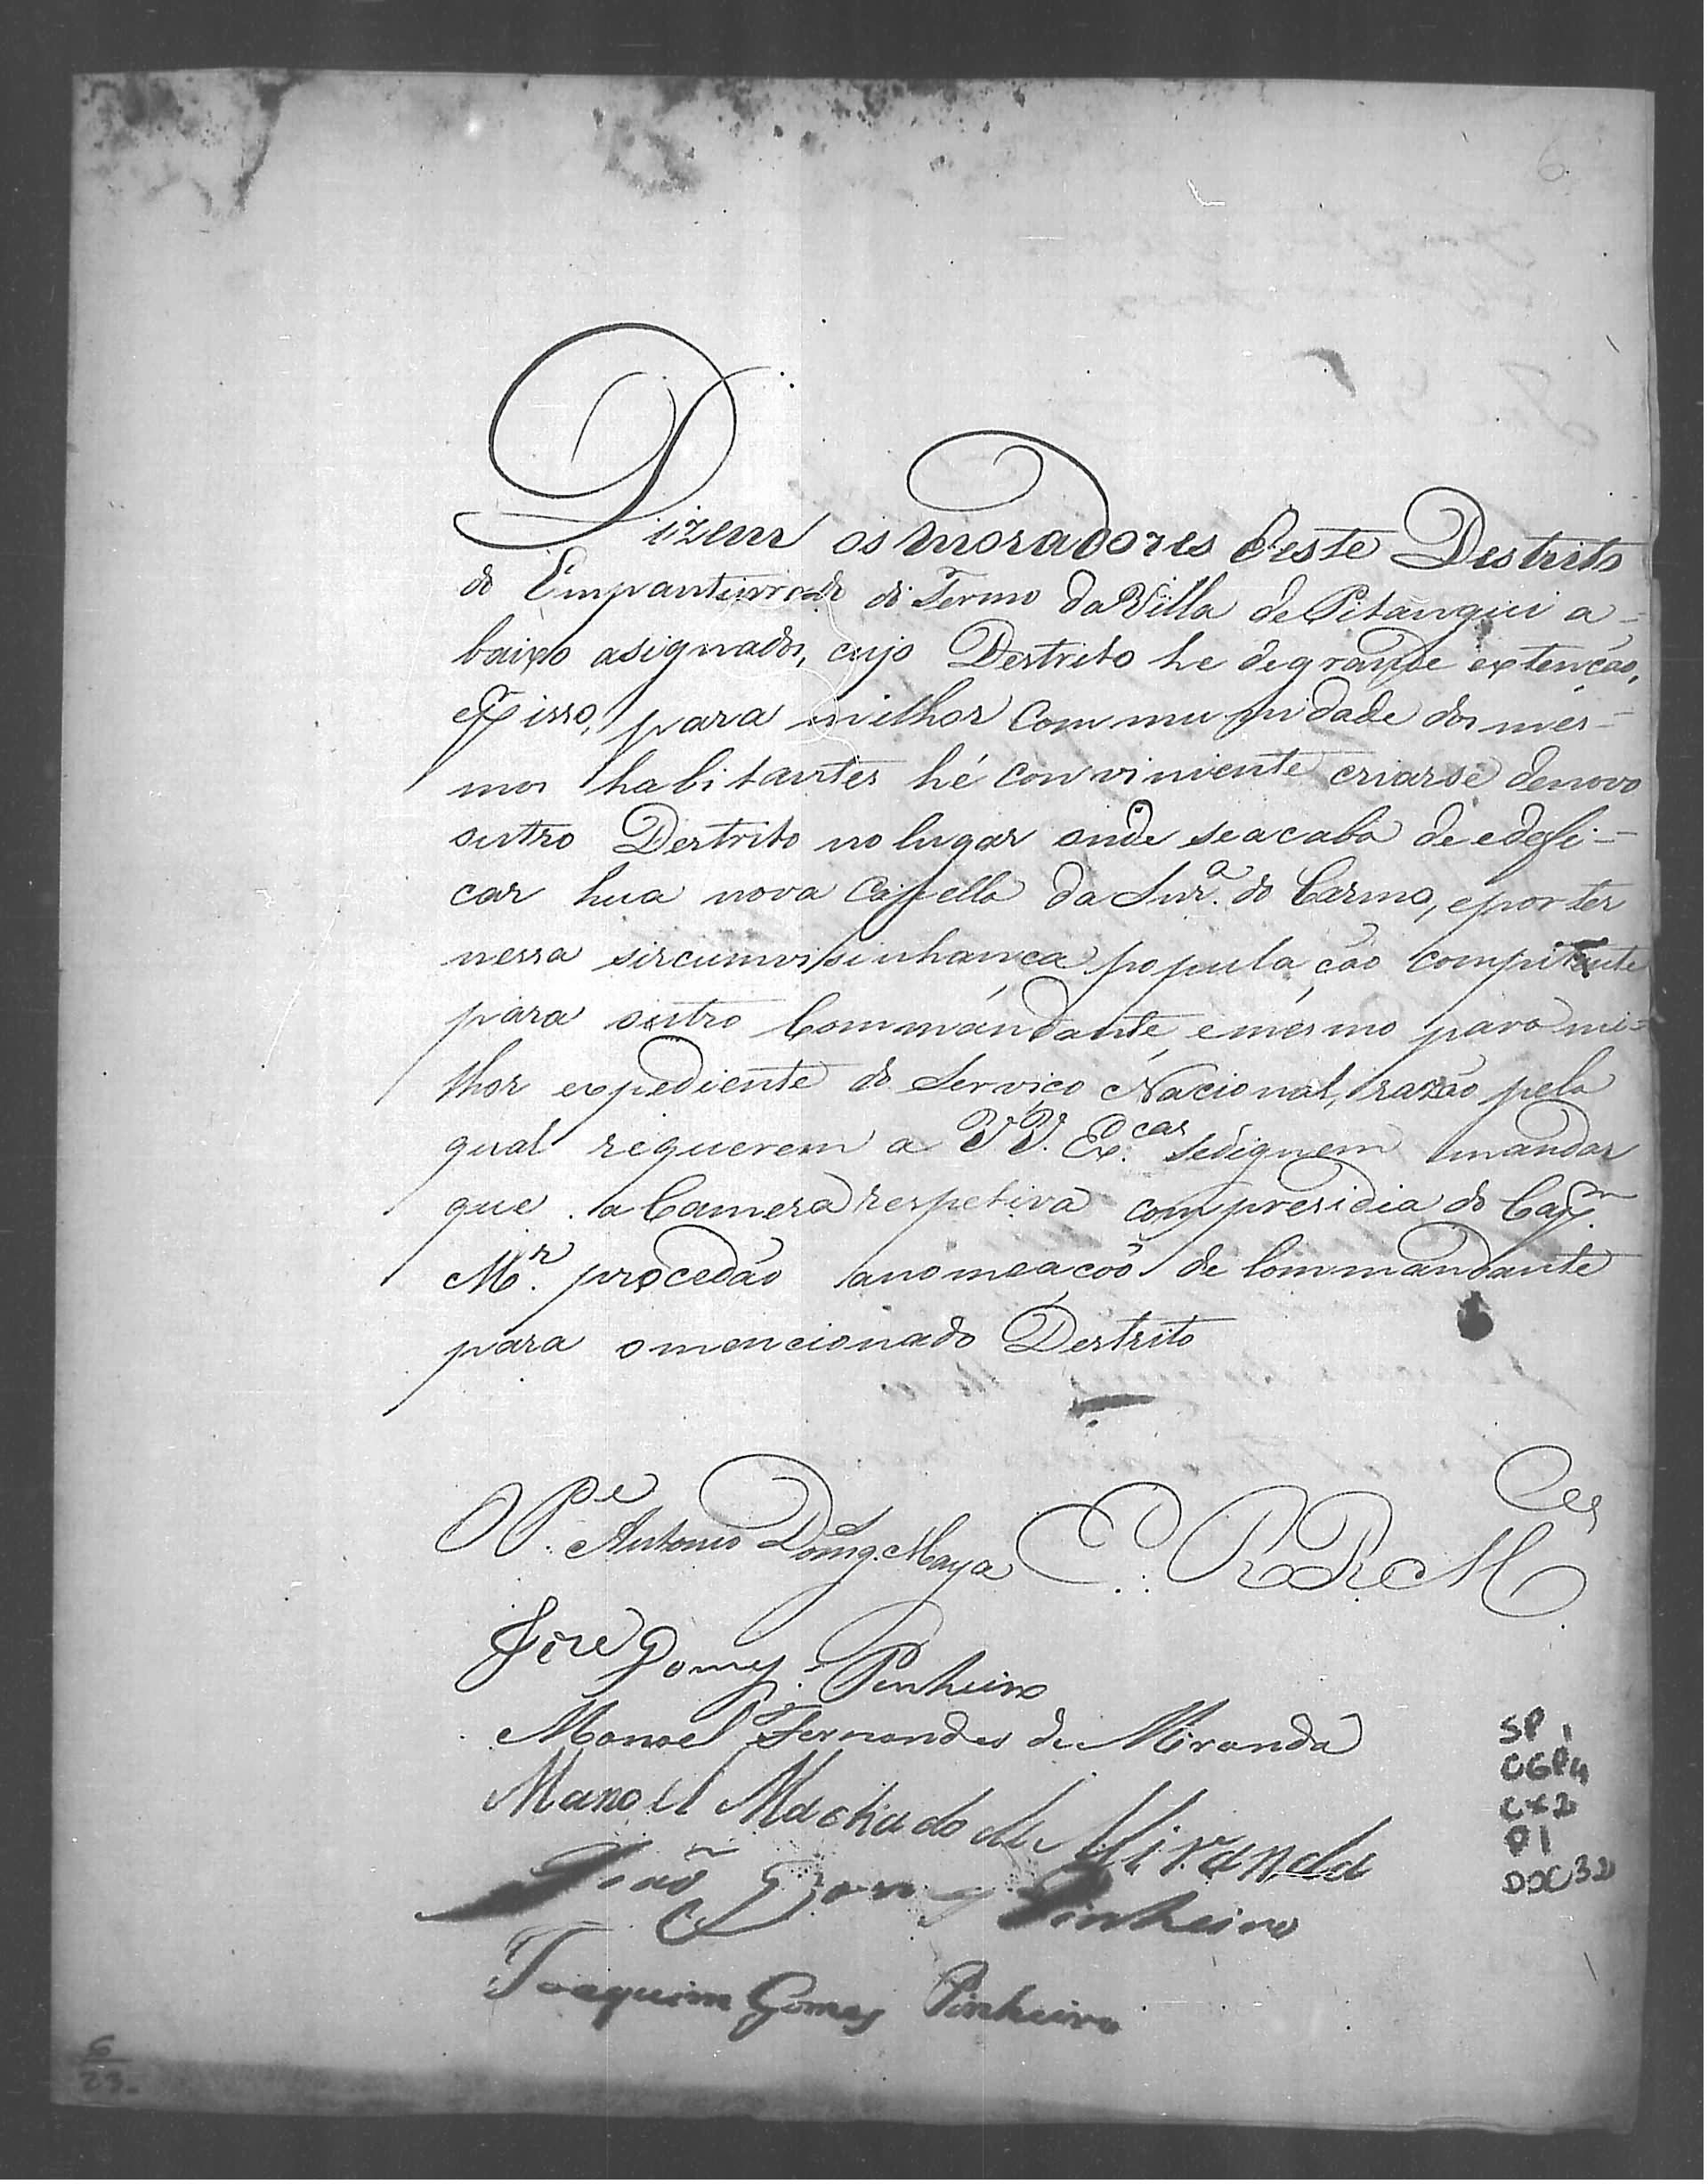 6
Dizem os moradores deste Destrito
do Empanturrado do Termo da Villa de Pitangui a-
baixo asignados, cujo Destrito he de grande extenção,
e p isso, para milhor Commu nidade dos mes-
mos habitantes hé conviniente criarse denovo
outro Destrito no lugar onde se acaba de edefi-
car hua nova Capella da Snr.ª do Carmo, e por ter
nessa sircumvisinhança população compitente
para outro Commandante, e mesmo para mi-
lhor expediente do Serviço Nacional, razão pela
qual requerem a V.V. Ex.cas se dignem mandar
que a Camera respetiva com presidia do Cap.m
M.r procedão a nomeação de Commandante
para o mencionado Destrito
O P.e Antonio Domg.s Maya E. R. R. M.ces
Jose Gomes Pinheiro
Manoel Fernandes de Miranda
Manoel Machado de Miranda
João Gomes Pinheiro
Joaquim Gomes Pinheiro
SP 1
CGP4
CX2
P1
DOC 32
6
23.